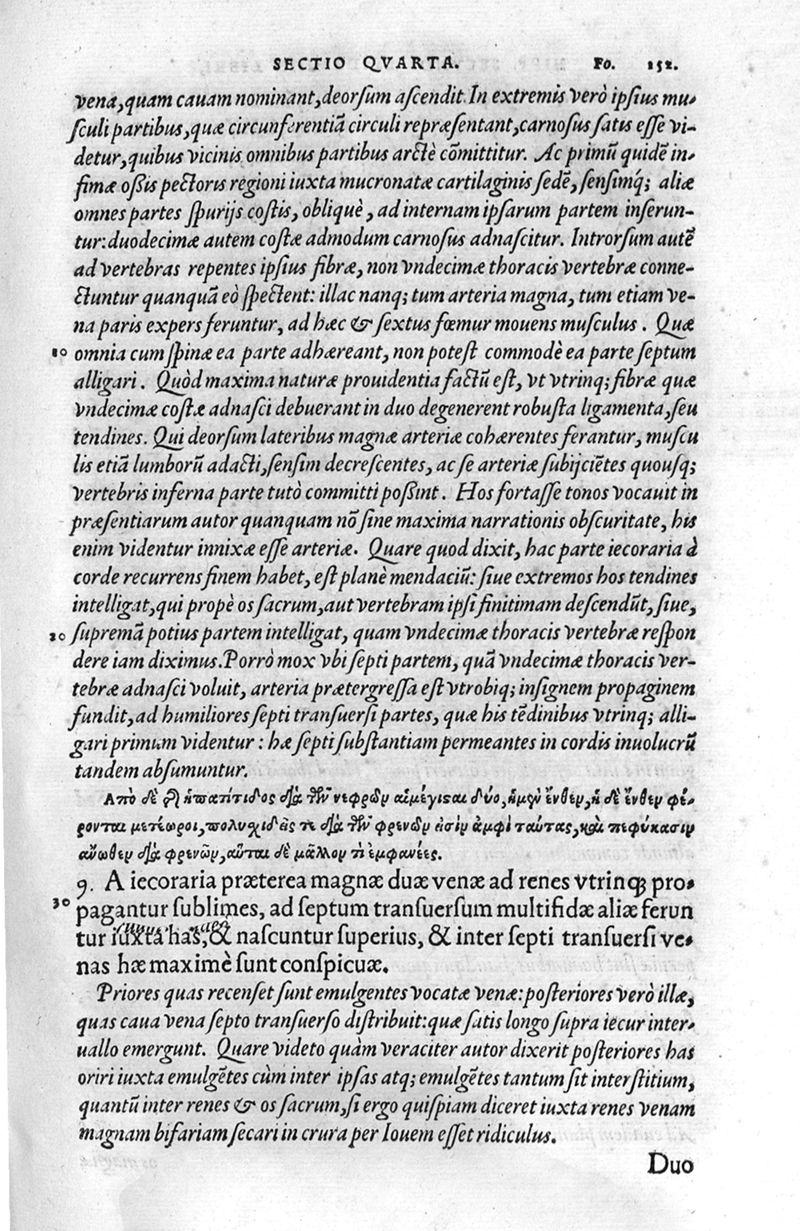 SECTIO QVARTA. Fo. 152.
vena,quam cauam nominant,deorſum aſcendit.In extremis verò ipſius mu-
ſculi partibus,quæ circunferentiã circuli repræſentant,carnoſus ſatis eſſe vi-
detur,quibus vicinis omnibus partibus arctè cõmittitur. Ac primũ quidẽ in-
fimæ oſsis pectoris regioni iuxta mucronatæ cartilaginis ſedẽ, ſenſimq́; aliæ
omnes partes ſpurijs coſtis, obliquè, ad internam ipſarum partem inſerun-
tur:duodecimæ autem coſtæ admodum carnoſus adnaſcitur. Introrſum autẽ
ad vertebras repentes ipſius fibræ, non vndecimæ thoracis vertebræ conne-
ctuntur quanquã eò ſpectent: illac nanq; tum arteria magna, tum etiam ve-
na paris expers feruntur, ad hæc & ſextus fœmur mouens muſculus. Quæ
10 omnia cum ſpinæ ea parte adhæreant, non poteſt commodè ea parte ſeptum
alligari. Quòd maxima naturæ prouidentia factũ eſt, vt vtrinq; fibræ quæ
vndecimæ coſtæ adnaſci debuerant in duo degenerent robuſta ligamenta,ſeu
tendines. Qui deorſum lateribus magnæ arteriæ cohærentes ferantur, muſcu
lis etiã lumborũ adacti,ſenſim decreſcentes, ac ſe arteriæ ſubijciẽtes quouſq;
vertebris inferna parte tutò committi poßint. Hos fortaſſe tonos vocauit in
præſentiarum autor quanquam nõ ſine maxima narrationis obſcuritate, his
enim videntur innixæ eſſe arteriæ. Quare quod dixit, hac parte iecoraria à
corde recurrens finem habet, eſt planè mendaciũ: ſiue extremos hos tendines
intelligat,qui propè os ſacrum,aut vertebram ipſi finitimam deſcendũt, ſiue,
20 ſupremã potius partem intelligat, quam vndecimæ thoracis vertebræ reſpon
dere iam diximus.Porrò mox vbi ſepti partem, quã vndecimæ thoracis ver-
tebræ adnaſci voluit, arteria prætergreſſa eſt vtrobiq; inſignem propaginem
fundit,ad humiliores ſepti tranſuerſi partes, quæ his tẽdinibus vtrinq; alli-
gari primum videntur : hæ ſepti ſubſtantiam permeantes in cordis inuolucrũ
tandem abſumuntur.
Ἀπὸ δὲ τῆ ἡπατίτιδος διὰ τῶν νεφρῶν αἱ μέγισαι δύο, ἡ μὲν ἔνθεν, ἡ δὲ ἔνθεν φέ-
ρονται μετέωροι, πολυχιδέες τε διὰ τῶν φρενῶν ἀσὶν ἀμφὶ ταύτας, καὶ πεφύκασιν
ἄνωθεν διὰ φρενῶν, αὗται δὲ μᾶλλον τι ἐμφανέες.
9. A iecoraria præterea magnæ duæ venæ ad renes vtrinq; pro-
30 pagantur ſublimes, ad ſeptum tranſuerſum multifidæ aliæ ferun
tur iuxta has, & naſcuntur ſuperius, & inter ſepti tranſuerſi ve-
nas hæ maximè ſunt conſpicuæ.
Priores quas recenſet ſunt emulgentes vocatæ venæ: poſteriores verò illæ,
quas caua vena ſepto tranſuerſo diſtribuit:quæ ſatis longo ſupra iecur inter-
uallo emergunt. Quare videto quàm veraciter autor dixerit poſteriores has
oriri iuxta emulgẽtes cùm inter ipſas atq; emulgẽtes tantum ſit interſtitium,
quantũ inter renes & os ſacrum,ſi ergo quiſpiam diceret iuxta renes venam
magnam bifariam ſecari in crura per Iouem eſſet ridiculus.
Duo